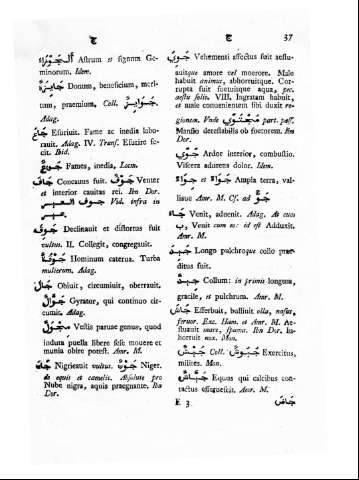 ج
ج
37
أَلْجَوْزَاءُ Astrum et signum Ge-
minorum. Idem.
جَايِزَةٌ Donum, beneficium, meri-
tum, praemium. Coll. جَوَايِزُ
Adag.
جَاعَ Esuriuit. Fame ac inedia labo-
rauit. Adag. IV. Transf. Esurire fe-
cit. Ibid.
جُوعٌ Fames, inedia, Locm.
جَافَ Concauus fuit. جَوْفٌ Venter
et interior cauitas rei. Ibn Dor.
جوف العير Vid. infra in
عير.
جَوِفَ Declinauit et distortus fuit
vultus. II. Collegit, congregauit.
جَوْقَةٌ Hominum caterua. Turba
mulierum. Adag.
جَالَ Obiuit, circumiuit, oberrauit.
جَوَّالٌ Gyrator, qui continuo cir-
cumit. Adag.
مِجْوَلٌ Vestis paruae genus, quod
induta puella libere sese mouere et
munia obire potest. Amr. M.
جَانَ Nigrescuit vultus. جَوْنٌ Niger.
de equis et camelis. Absolute pro
Nube nigra, aquis praegnante. Ibn
Dor.
جَوِيَ Vehementi affectus fuit aestu-
auitque amore vel moerore. Male
habuit animus, abhorruitque. Cor-
rupta fuit foetuitque aqua, pec.
aestu solis. VIII. Ingratum habuit,
et naui conuenientem sibi duxit re-
gionem. Vnde مُجْتَوًى part. pass.
Mansio detestabilis ob foetorem. Ibn
Dor.
جَوًى Ardor interior, combustio.
Viscera adurens dolor. Idem.
جِوَاءٌ et جَوَاءٌ Ampla terra, val-
lisue Amr. M. Cf. ad جَوٌّ
جَاءَ Venit, aduenit. Adag. At cum
ب, Venit cum re: id est Adduxit.
Amr. M.
جَيِدَ Longo pulchroque collo prae-
ditus fuit.
جِيدٌ Collum: in primis longum,
gracile, et pulchrum. Amr. M.
جَاشَ Efferbuit, bulliuit olla, nasus,
feruor. Exc. Ham. et Amr. M. Ae-
stuauit mare, spuma. Ibn Dor. In-
horruit nox. Mon.
جَيْشٌ Coll. جُيُوشٌ Exercitus,
milites. Mon.
جَيَّاشٌ Equus qui calcibus con-
tactus efferuescit. Amr. M.
E 3
جَاضَ